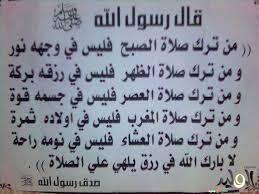 قال رسول الله ﷺ
(( من ترك صلاة الصبح فليس في وجهه نور
و من ترك صلاة الظهر فليس في رزقه بركة
و من ترك صلاة العصر فليس في جسمه قوة
و من ترك صلاة المغرب فليس في اولاده ثمرة
و من ترك صلاة العشاء فليس في نومه راحة
لا بارك الله في رزق يلهي علي الصلاة )) .
صدق رسول الله ﷺ